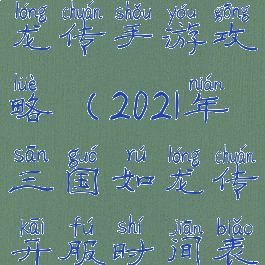 lóng chuán shǒu yóu gōng
龙传手游攻
lüè nián
略(2021年
sān guó rú lóng chuán
三国如龙传
kāi fú shí jiān biǎo
开服时间表